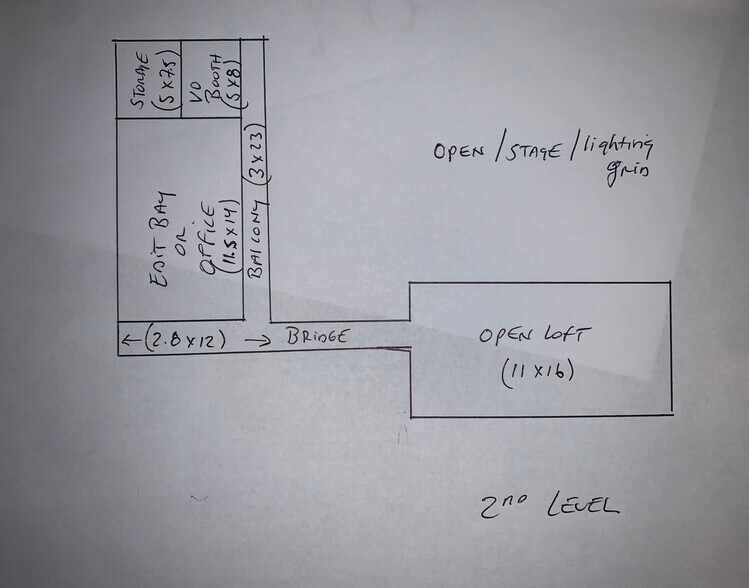 STORAGE
(5 X 7.5)
VO
BOOTH
(5 X 8)
OPEN / STAGE / lighting
grid
EDIT BAY
OR
OFFICE
(11.5 X 14)
BALCONY (3 X 23)
(2.8 X 12)
BRIDGE
OPEN LOFT
(11 X 16)
2ND LEVEL